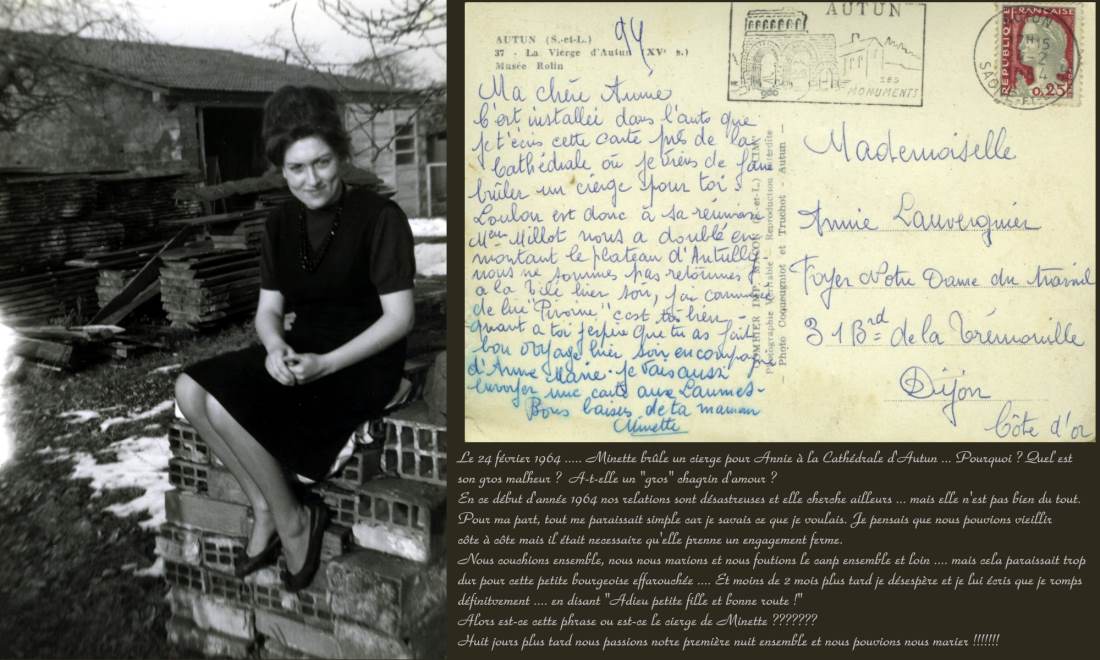 AUTUN (S.-et-L.)
37 - La Vierge d'Autun (XVe s.)
Musée Rolin
94
AUTUN
SES
MONUMENTS
REPUBLIQUE FRANÇAISE
0,25
AUTUN
15
2
SAONE-ET-
Ma chère Annie
C'est installée dans l'auto que
je t'écris cette carte près de la
Cathédrale où je viens de faire
brûler un cierge pour toi.
Loulou est donc à sa réunion
Mr Millot nous a doublé en
montant le plateau d'Antully
nous ne sommes pas retournés
a la Télé hier soir, j'ai commencé
de lire "Pivoine" c'est très bien, -
quant a toi j'espère que tu as fait
bon voyage hier soir en compagnie
d'Anne Marie. je vais aussi
envoyer une carte aux Laumes -
Bons baisers de ta maman
Minette
COMBIER IMP. MACON (S.-et-L.)
Photographie Véritable - Reproduction interdite
- Photo Coqueugniot et Truchot - Autun -
Mademoiselle
Annie Lauvergnier
Foyer Notre Dame du travail
31 Brd de la Trémouille
Dijon
Côte d'or
Le 24 février 1964 ..... Minette brûle un cierge pour Annie à la Cathédrale d'Autun ... Pourquoi ? Quel est
son gros malheur ? A-t-elle un "gros" chagrin d'amour ?
En ce début d'année 1964 nos relations sont désastreuses et elle cherche ailleurs ... mais elle n'est pas bien du tout.
Pour ma part, tout me paraissait simple car je savais ce que je voulais. Je pensais que nous pouvions vieillir
côte à côte mais il était necessaire qu'elle prenne un engagement ferme.
Nous couchions ensemble, nous nous marions et nous foutions le canp ensemble et loin .... mais cela paraissait trop
dur pour cette petite bourgeoise effarouchée .... Et moins de 2 mois plus tard je désespère et je lui écris que je romps
définitvement .... en disant "Adieu petite fille et bonne route !"
Alors est-ce cette phrase ou est-ce le cierge de Minette ???????
Huit jours plus tard nous passions notre première nuit ensemble et nous pouvions nous marier !!!!!!!